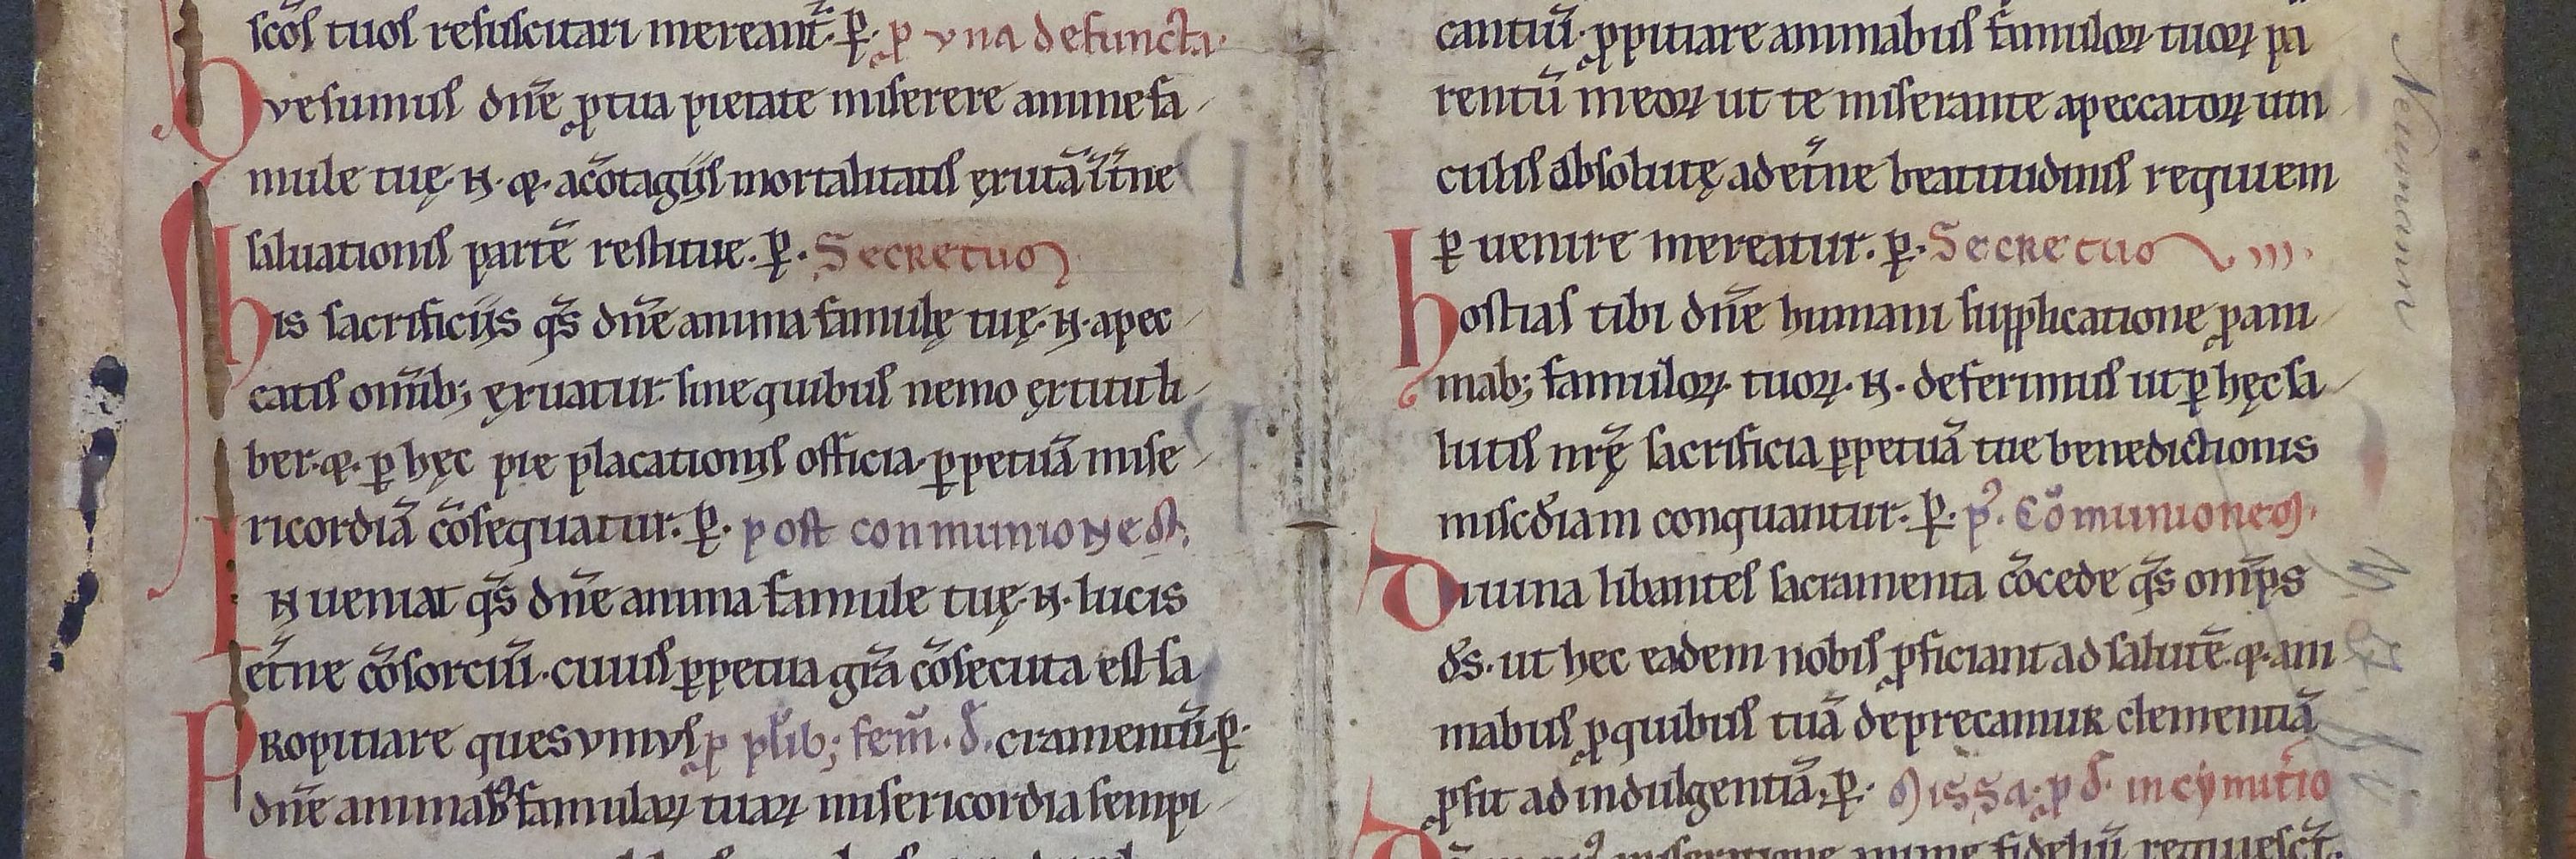 scōs tuos resuscitari mereant̄. ꝑ. ꝓ vna defuncta.
Qvesumus dn̄e ꝓ tua pietate miserere anime fa
mule tuę. N. ⁊ a cōtagiis mortalitatis ęrutā ī et̄ne
saluationis partē restitue. ꝑ. Secretum
his sacrificiis qs̄ dn̄e anima famulę tuę. N. a pec
catis om̄ib; ęruatur sine quibus nemo ęrtitit li
ber. ⁊ ꝑ hęc pie placationis officia ꝑpetuā mise
ricordiā cōsequatur. ꝑ. post conmunionem.
INueniat qs̄ dn̄e anima famule tuę. N. lucis
et̄ne cōsorciū. cuius ꝑpetua grā cōsecuta est sa
Propitiare quesvmvs ꝓ plib; fem̄. d. cramentū. ꝑ.
dn̄e animab; famulaꝝ tuaꝝ misericordia sempi
cantiū. ꝓpitiare animabus famuloꝝ tuoꝝ pa
rentū meoꝝ ut te miserante a peccatoꝝ uin
culis absolutę ad et̄ne beatitudinis requiem
ꝑuenire mereatur. ꝑ. Secretum
hostias tibi dn̄e humani supplicatione ꝓ ani
mab; famuloꝝ tuoꝝ. N. deferimus ut ꝑ hęc sa
lutis nr̄ę sacrificia ꝑpetuā tue benedictionis
misc̄diam conquantur. ꝑ. p̕. Cōmunionem.
Diuina libantes sacramenta cōcede qs̄ omp̄s
ds̄. ut hec eadem nobis ꝓficiant ad salutē. ⁊ ani
mabus ꝓ quibus tuā deprecamur clementiā
ꝓsit ad indulgentiā. ꝑ. Missa. ꝓ d. in cymit̄io
Neumann